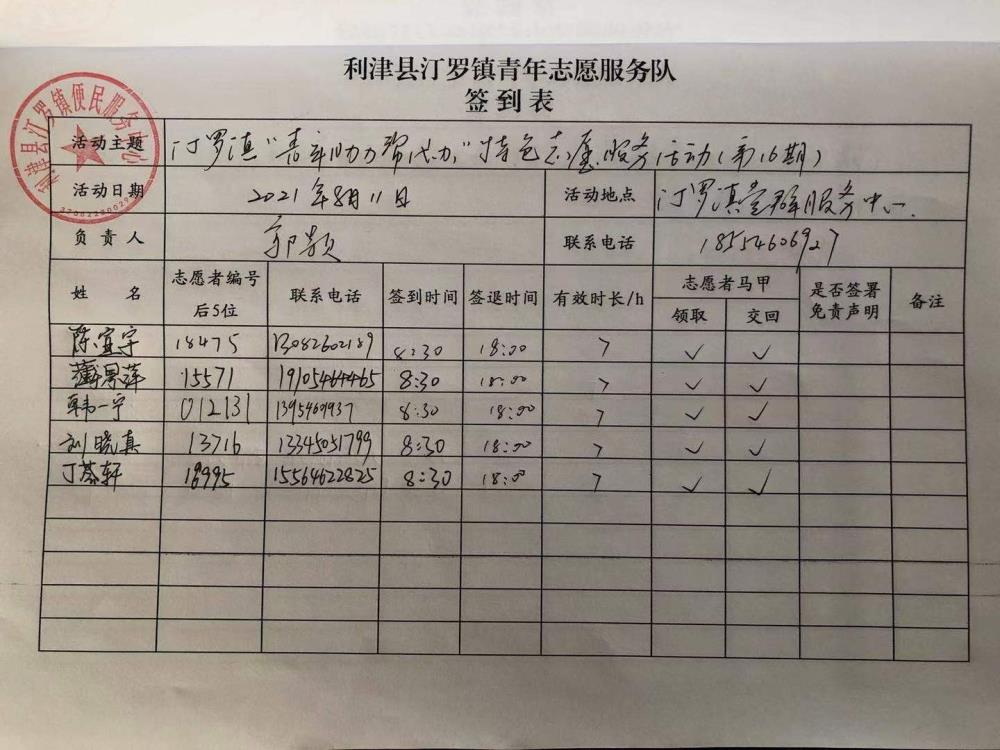 利津县汀罗镇青年志愿服务队
签到表
利津县汀罗镇便民服务中心
活动主题 汀罗镇“青年助力 帮代办”特色志愿服务活动(第16期)
活动日期 2021年8月11日 活动地点 汀罗镇党群服务中心.
负责人 郭颖 联系电话 18554606927
姓名 志愿者编号后5位 联系电话 签到时间 签退时间 有效时长/h 志愿者马甲 领取 交回 是否签署免责声明 备注
陈宜宇 18475 13082602189 8:30 18:00 7 ✓ ✓
15571 19105464465 8:30 18:00 7 ✓ ✓
韩一宁 012131 1395460937 8:30 18:00 7 ✓ ✓
刘晓真 13716 13345051799 8:30 18:00 7 ✓ ✓
丁蓉轩 18995 15564622825 8:30 18:00 7 ✓ ✓